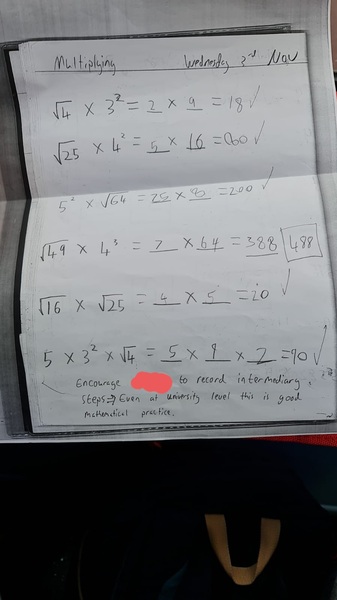 Multiplying Wednesday 2nd Nov
√4 × 3² = 2 × 9 = 18 ✓
√25 × 4² = 5 × 16 = 80 ✓
5² × √64 = 25 × 8 = 200 ✓
√49 × 4³ = 7 × 64 = 388 488
√16 × √25 = 4 × 5 = 20 ✓
5 × 3² × √4 = 5 × 9 × 2 = 90 ✓
Encourage to record intermediary
steps ⇒ Even at university level this is good
mathematical practice.